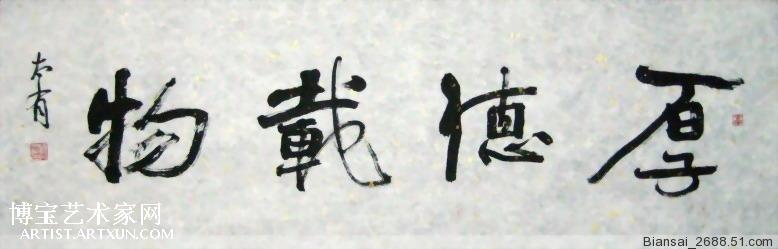 厚德載物
博宝艺术家网
ARTIST.ARTXUN.COM
Biansai_2688.51.com